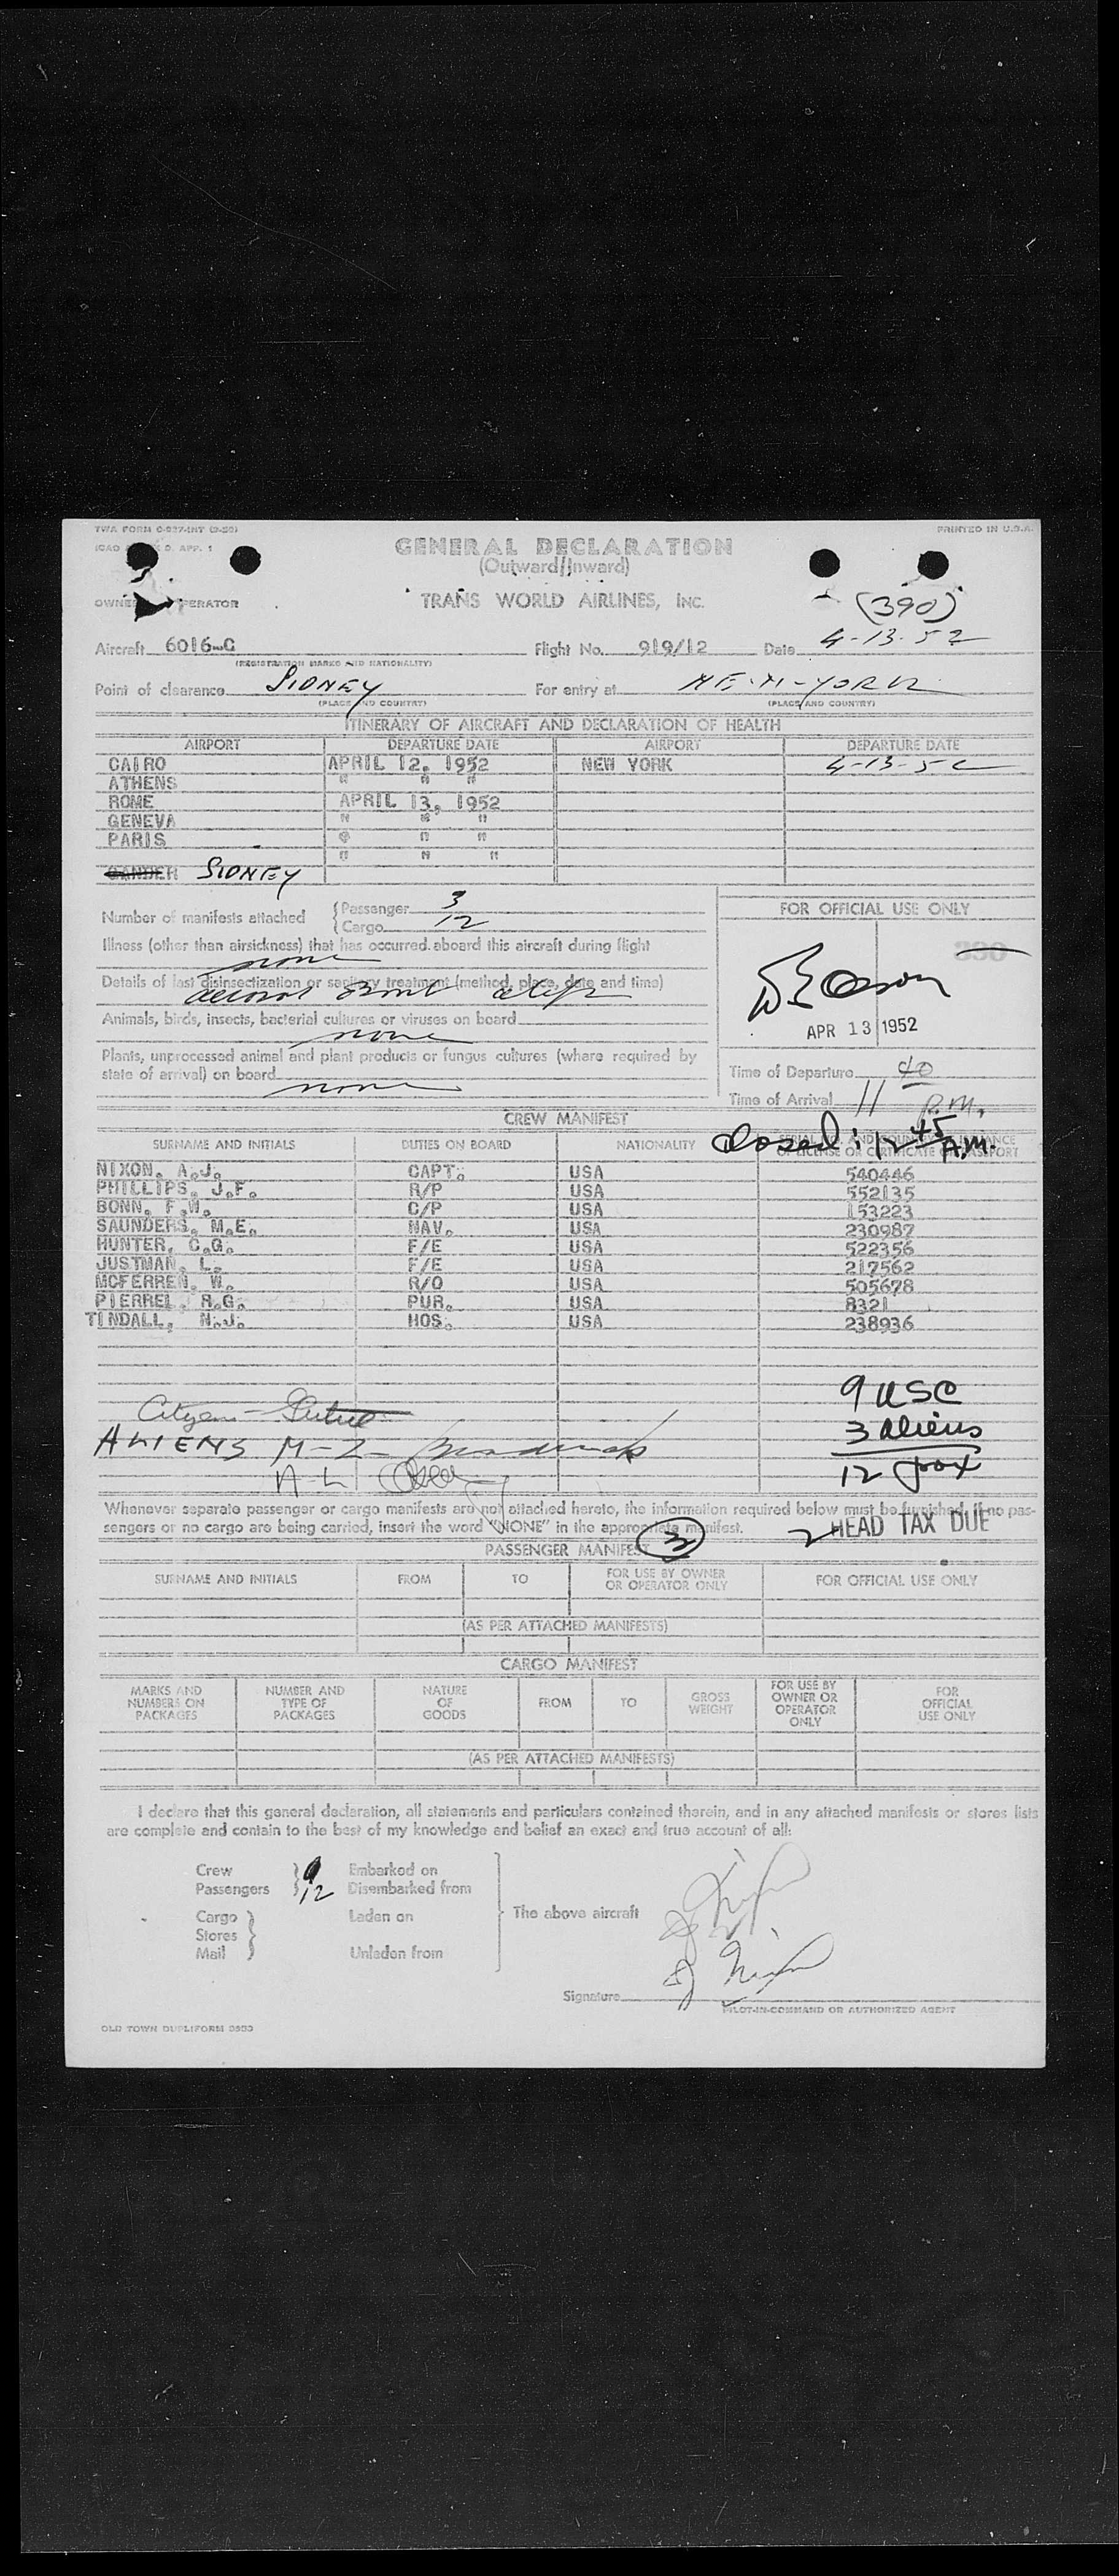 TWA FORM O-937-INT (9-50)
PRINTED IN U.S.A.
ICAO APP. 1
GENERAL DECLARATION
(Outward/Inward)
OWNER OPERATOR
TRANS WORLD AIRLINES, INC.
(390)
Aircraft 6016-C Flight No. 919/12 Date 4-13-52
(REGISTRATION MARKS AND NATIONALITY)
Point of clearance SIDNEY For entry at NEW-YORK
(PLACE AND COUNTRY) (PLACE AND COUNTRY)
ITINERARY OF AIRCRAFT AND DECLARATION OF HEALTH
AIRPORT DEPARTURE DATE AIRPORT DEPARTURE DATE
CAIRO APRIL 12, 1952 NEW YORK 4-13-52
ATHENS " " "
ROME APRIL 13, 1952
GENEVA " " "
PARIS " " "
" " "
GANDER SIDNEY
Number of manifests attached {Passenger 3
{Cargo 12
FOR OFFICIAL USE ONLY
Illness (other than airsickness) that has occurred aboard this aircraft during flight
none
390
Details of last disinsectization or sanitary treatment (method, place, date and time)
aerosol bomb
Animals, birds, insects, bacterial cultures or viruses on board
none
APR 13 1952
Plants, unprocessed animal and plant products or fungus cultures (where required by
state of arrival) on board
none
Time of Departure 40
Time of Arrival 11 P.M.
CREW MANIFEST
closed: 12 45 A.M.
SURNAME AND INITIALS DUTIES ON BOARD NATIONALITY SERIAL NO. AND COUNTRY OF ISSUANCE
OF LICENSE OR CERTIFICATE OR PASSPORT
NIXON, A.J. CAPT. USA 540446
PHILLIPS, J.F. R/P USA 552135
BONN, F.W. C/P USA 153223
SAUNDERS, M.E. NAV. USA 230987
HUNTER, C.G. F/E USA 522356
JUSTMAN, L. F/E USA 217562
MCFERREN, W. R/O USA 505678
PIERREL, R.G. PUR. USA 8321
TINDALL, N.J. HOS. USA 238936
9 USC
Citizens
3 aliens
ALIENS M-Z-
12 pax
A-L
Whenever separate passenger or cargo manifests are not attached hereto, the information required below must be furnished. If no pas-
sengers or no cargo are being carried, insert the word "NONE" in the appropriate manifest.
2 HEAD TAX DUE
PASSENGER MANIFEST 3
SURNAME AND INITIALS FROM TO FOR USE BY OWNER
OR OPERATOR ONLY FOR OFFICIAL USE ONLY
(AS PER ATTACHED MANIFESTS)
CARGO MANIFEST
MARKS AND
NUMBERS ON
PACKAGES
NUMBER AND
TYPE OF
PACKAGES
NATURE
OF
GOODS
FROM
TO
GROSS
WEIGHT
FOR USE BY
OWNER OR
OPERATOR
ONLY
FOR
OFFICIAL
USE ONLY
(AS PER ATTACHED MANIFESTS)
I declare that this general declaration, all statements and particulars contained therein, and in any attached manifests or stores lists
are complete and contain to the best of my knowledge and belief an exact and true account of all:
Crew } 9 Embarked on
Passengers } 12 Disembarked from
Cargo } Laden on
The above aircraft
Stores }
Mail } Unladen from
Signature
PILOT-IN-COMMAND OR AUTHORIZED AGENT
OLD TOWN DUPLIFORM